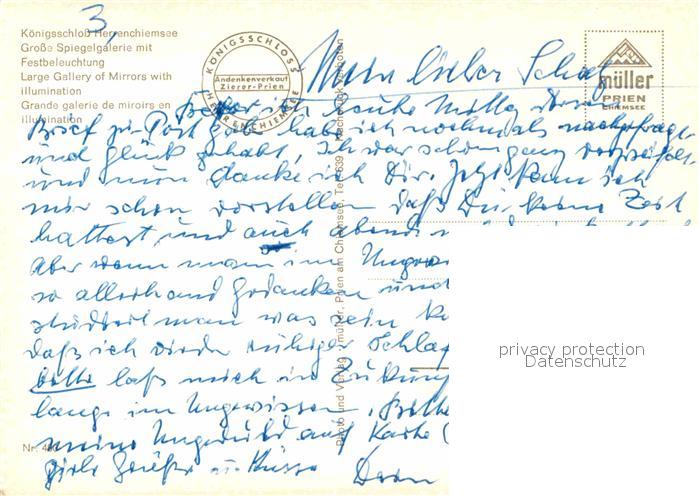 3,
Königsschloß Herrenchiemsee
Große Spiegelgalerie mit
Festbeleuchtung
Large Gallery of Mirrors with
illumination
Grande galerie de miroirs en
illumination
KÖNIGSSCHLOSS
Andenkenverkauf
Zierer-Prien
HERRENCHIEMSEE
müller
PRIEN
CHIEMSEE
Mein lieber Schatz
Bevor ich heute Mittag
Brief zu Post gab, habe ich nochmals nachgefragt
und Glück gehabt, Ich war schon ganz verzweifelt,
und nun danke ich Dir. Jetzt kann ich
mir schon vorstellen daß Du keine Zeit
hattest, und auch abends
Aber wenn man im
so allerhand Gedanken und
man was sein
daß ich wieder ruhiger
bitte laß mich in
lange im Ungewissen. Bitte
meine Ungeduld auf Karte
Viele Grüße u. Küsse Dein
Nr. 
Photo und Verlag müller, Prien am Chiemsee, Tel.
privacy protection
Datenschutz